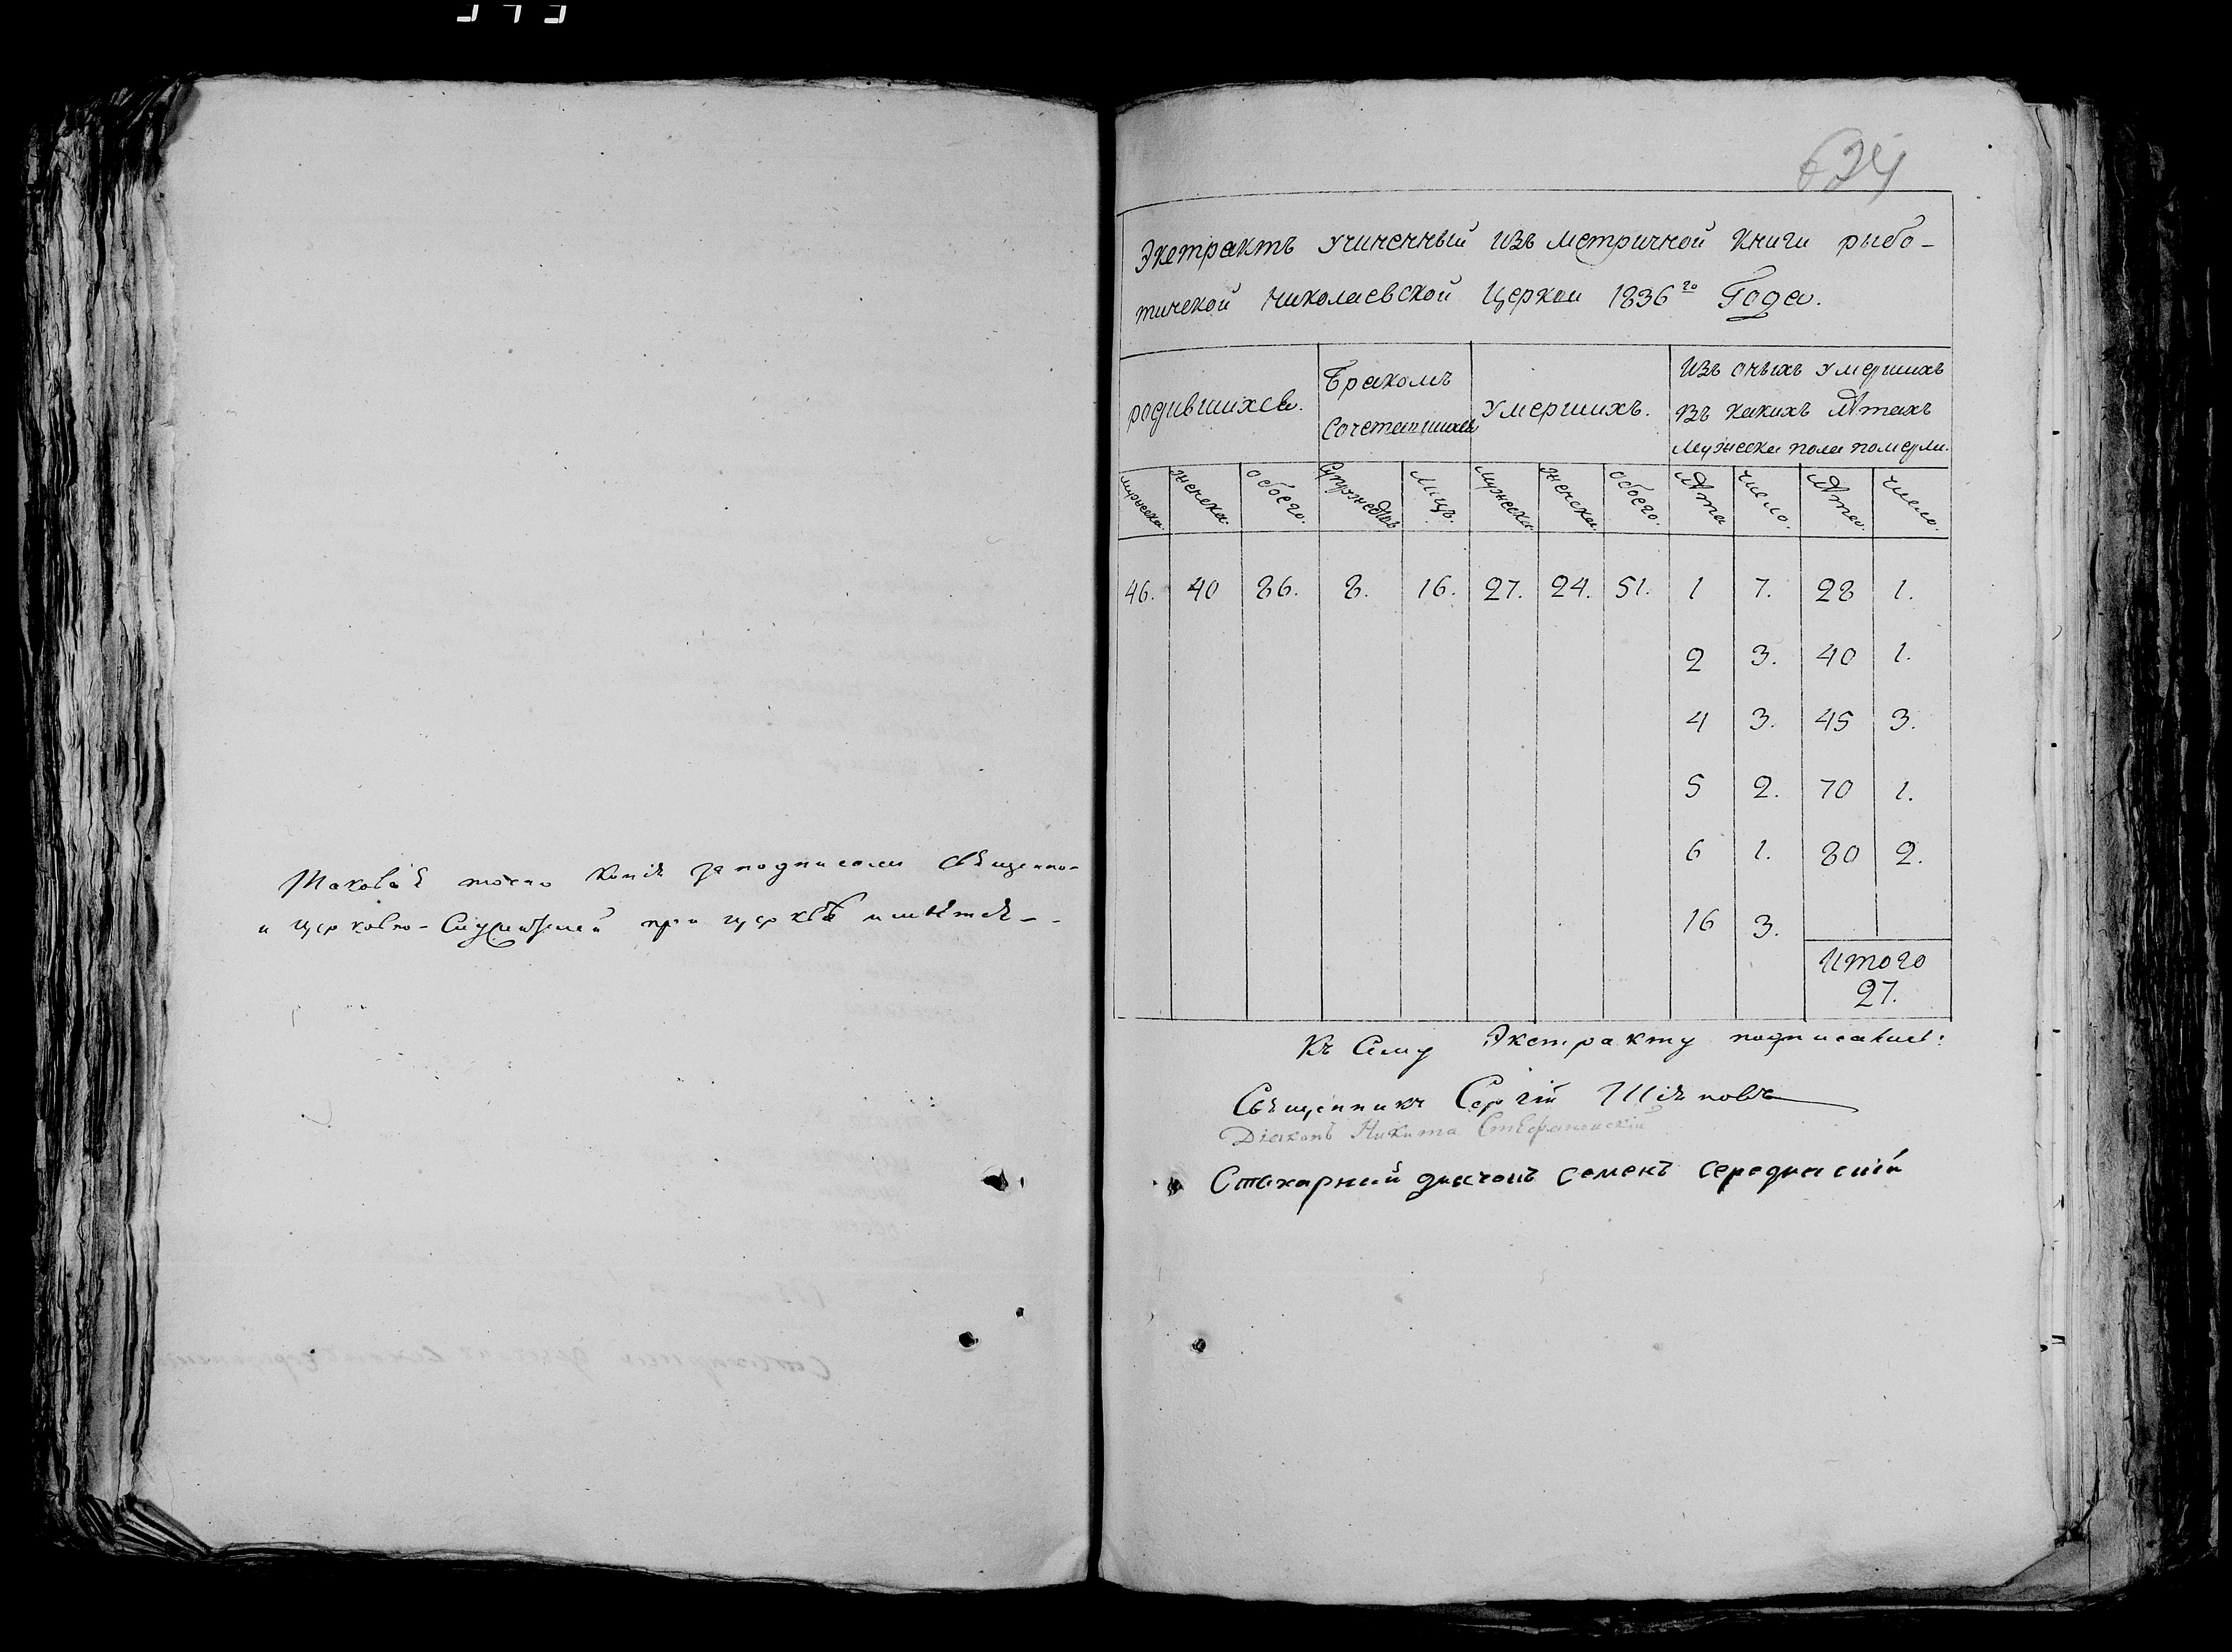 Таковая точно копія за подписомъ Священно-
и церковно-Служителей при церквѣ имѣется--
624
Экстрактъ учиненный изъ метричной книги рыбо-
тичской Николаевской Церкви 1836го Года.
родившихся.
Бракомъ
Сочетавшихся
умершихъ.
Изъ оныхъ умершихъ
въ какихъ лѣтахъ
мужеска пола померли.
мужеска. женска. обоего. Супружествъ лицъ. мужеска женска обоего. лѣта число. лѣта. число.
46. 40 86. 8. 16. 27. 24. 51. 1 7. 28 1.
2 3. 40 1.
4 3. 45 3.
5 2. 70 1.
6 1. 80 2.
16 3.
Итого
27.
Къ Сему Экстракту подписались:
Священникъ Сергій
Діаконъ Никита
Стихарный дьячокъ семенъ